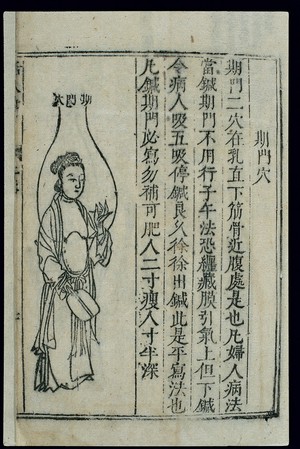 期門穴
期門二穴在乳直下筋骨近腹處是也凡婦人病法
當鍼期門不用行子午法恐纏藏膜引氣上但下鍼
令病人吸五吸停鍼良久徐徐出鍼此是平寫法也
凡鍼期門必寫勿補可肥人二寸瘦人寸半深
期門穴